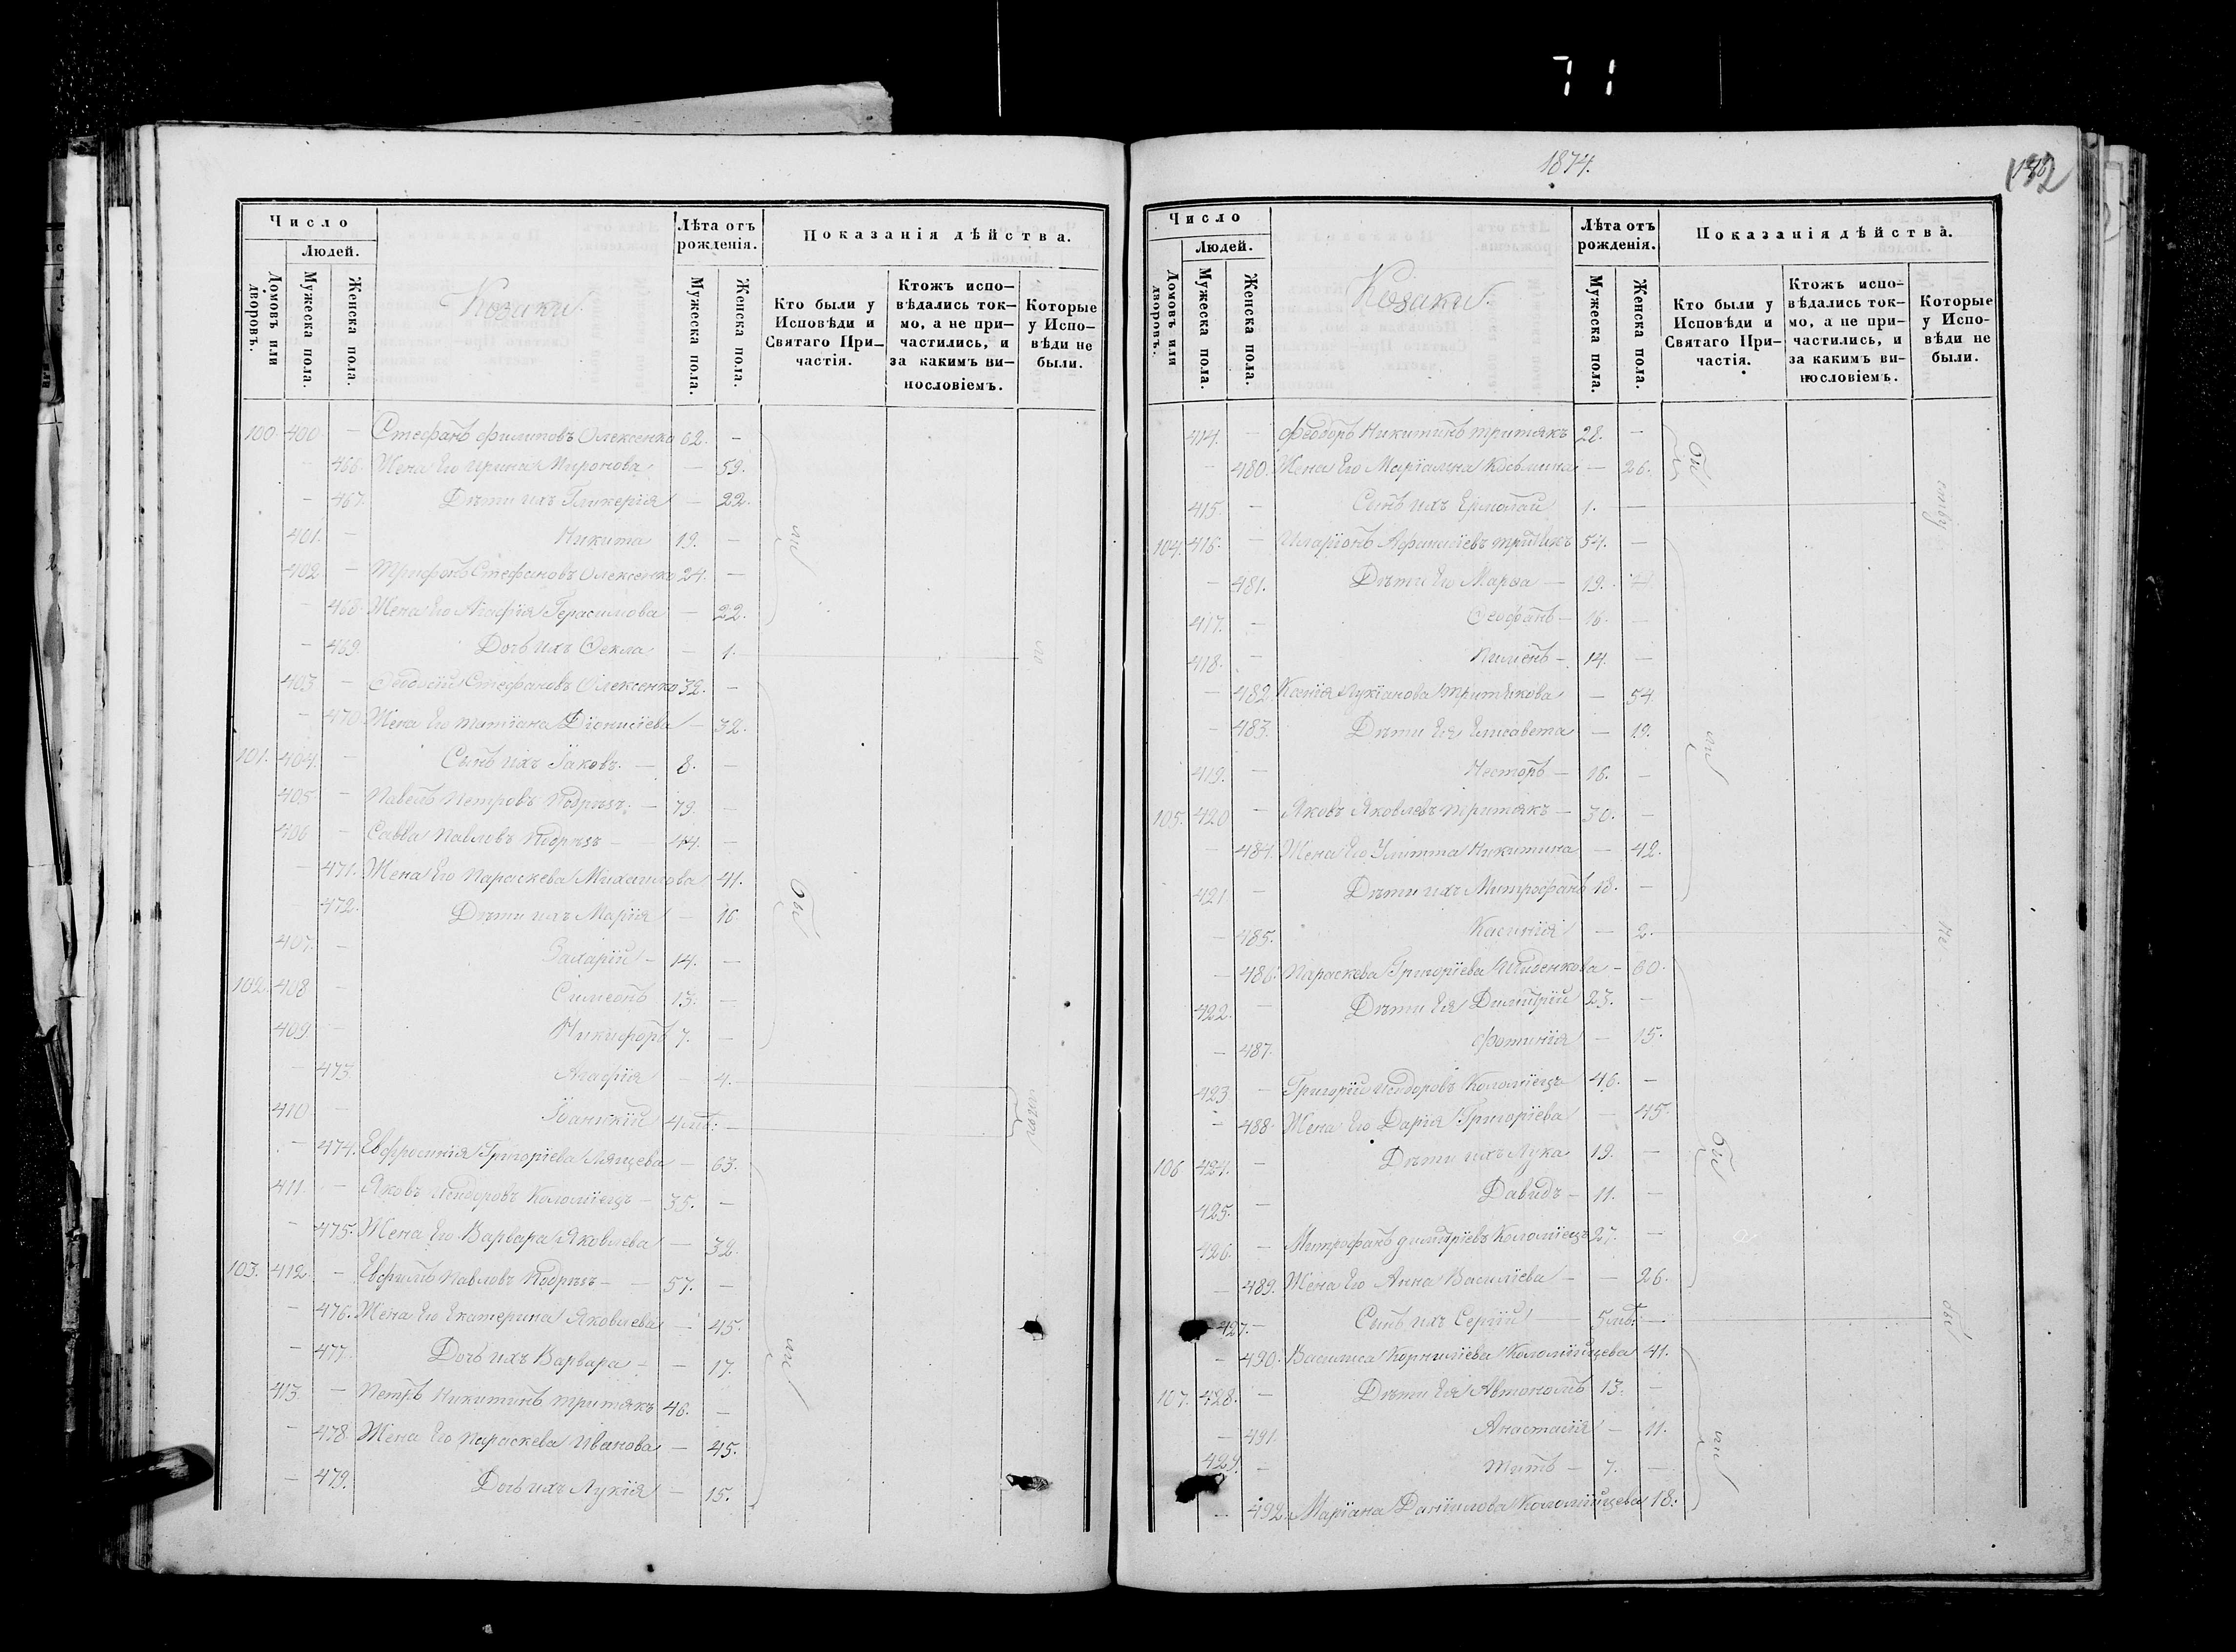 71
1874.
Число
Людей.
Домовъ или дворовъ.
Мужеска пола.
Женска пола.
Козаки.
Лѣта отъ рожденія.
Мужеска пола.
Женска пола.
Показанія дѣйства.
Кто были у Исповѣди и Святаго Причастія.
Ктожъ исповѣдались токмо, а не причастились, и за какимъ винословіемъ.
Которые у Исповѣди не были.
100. 400 — Стефанъ Филиповъ Олексенко 62. —
— 466. Жена Его Ирина Миронова — 59.
— 467. Дѣти ихъ Гликерія — 22.
401. — Никита 19. —
402 — Трифонъ Стефановъ Олексенко 24. —
— 468. Жена Его Агафія Герасимова — 22.
— 469. Дочь ихъ Ѳекла — 1.
403 — Стефановъ Олексенко 32. —
— 470 Жена Его Татіана Діонисіева — 32.
101. 404. — Сынъ ихъ Іаковъ. — 8. —
405 — Павелъ Петровъ Подрѣзъ. — 79. —
406 — Савва Павловъ Подрѣзъ — 44. —
471. Жена Его Параскева Михаилова 41.
472. Дѣти ихъ Марія — 16.
407. — Захарій — 14. —
102. 408 — Симеонъ 13. —
409. — Никифоръ 7. —
— 473. Агафія — 4.
410 — Іоанникій 4 мѣ. —
— 474. Евфросинія Григоріева — 63.
411 — Яковъ Исидоровъ Коломіецъ — 35. —
— 475. Жена Его Варвара Яковлева — 32.
103. 412. — Евфимъ Павловъ Подрѣзъ — 57. —
— 476. Жена Его Екатерина Яковлева — 45.
— 477. Дочь ихъ Варвара — — 17.
413 — Петръ Никитинъ Притякъ 46. —
— 478. Жена Его Параскева Иванова — 45.
— 479. Дочь ихъ Лукія — 15.
Число
Людей.
Домовъ или дворовъ.
Мужеска пола.
Женска пола.
Козаки.
Лѣта отъ рожденія.
Мужеска пола.
Женска пола.
Показанія дѣйства.
Кто были у Исповѣди и Святаго Причастія.
Ктожъ исповѣдались токмо, а не причастились, и за какимъ винословіемъ.
Которые у Исповѣди не были.
414. — Феодоръ Никитинъ Притякъ 28. —
— 480. Жена Его Маріамна Косьмина — 26.
415. — Сынъ ихъ Ермолай 1. —
104. 416. — Иларіонъ Афанасіевъ 54. —
— 481. Дѣти Его Марѳа — 19.
417. — Ѳеофанъ — 16. —
418. — Пименъ — 14. —
— 482 Лукіанова Притякова — 54.
— 483. Дѣти Ея Елисавета — 19.
419. — Несторъ — 16. —
105. 420 — Яковъ Яковлевъ Притякъ — 30. —
— 484. Жена Его Улитта Никитина — 42.
421 — Дѣти ихъ Митрофанъ 18. —
— 485. — 2.
— 486. Параскева Григоріева — 60.
422. — Дѣти Ея Димитрій 23. —
— 487. Фотинія — 15.
423. — Григорій Исидоровъ Коломіецъ 46. —
— 488. Жена Его Дарія Григоріева — 45.
106 424. — Дѣти ихъ Лука 19. —
425. — Давидъ — 11. —
426. — Митрофанъ Димитріевъ Коломіецъ 27. —
— 489. Жена Его Анна Василіева — — 26.
427. — Сынъ ихъ Сергій — 5 мѣ. —
— 490. Василиса Корниліева Коломійцева 41.
107. 428. — Дѣти Ея Автономъ 13. —
— 491. Анастасія — 11.
429. — Титъ — 7. —
— 492. Маріана Даніилова Коломійцева 18.